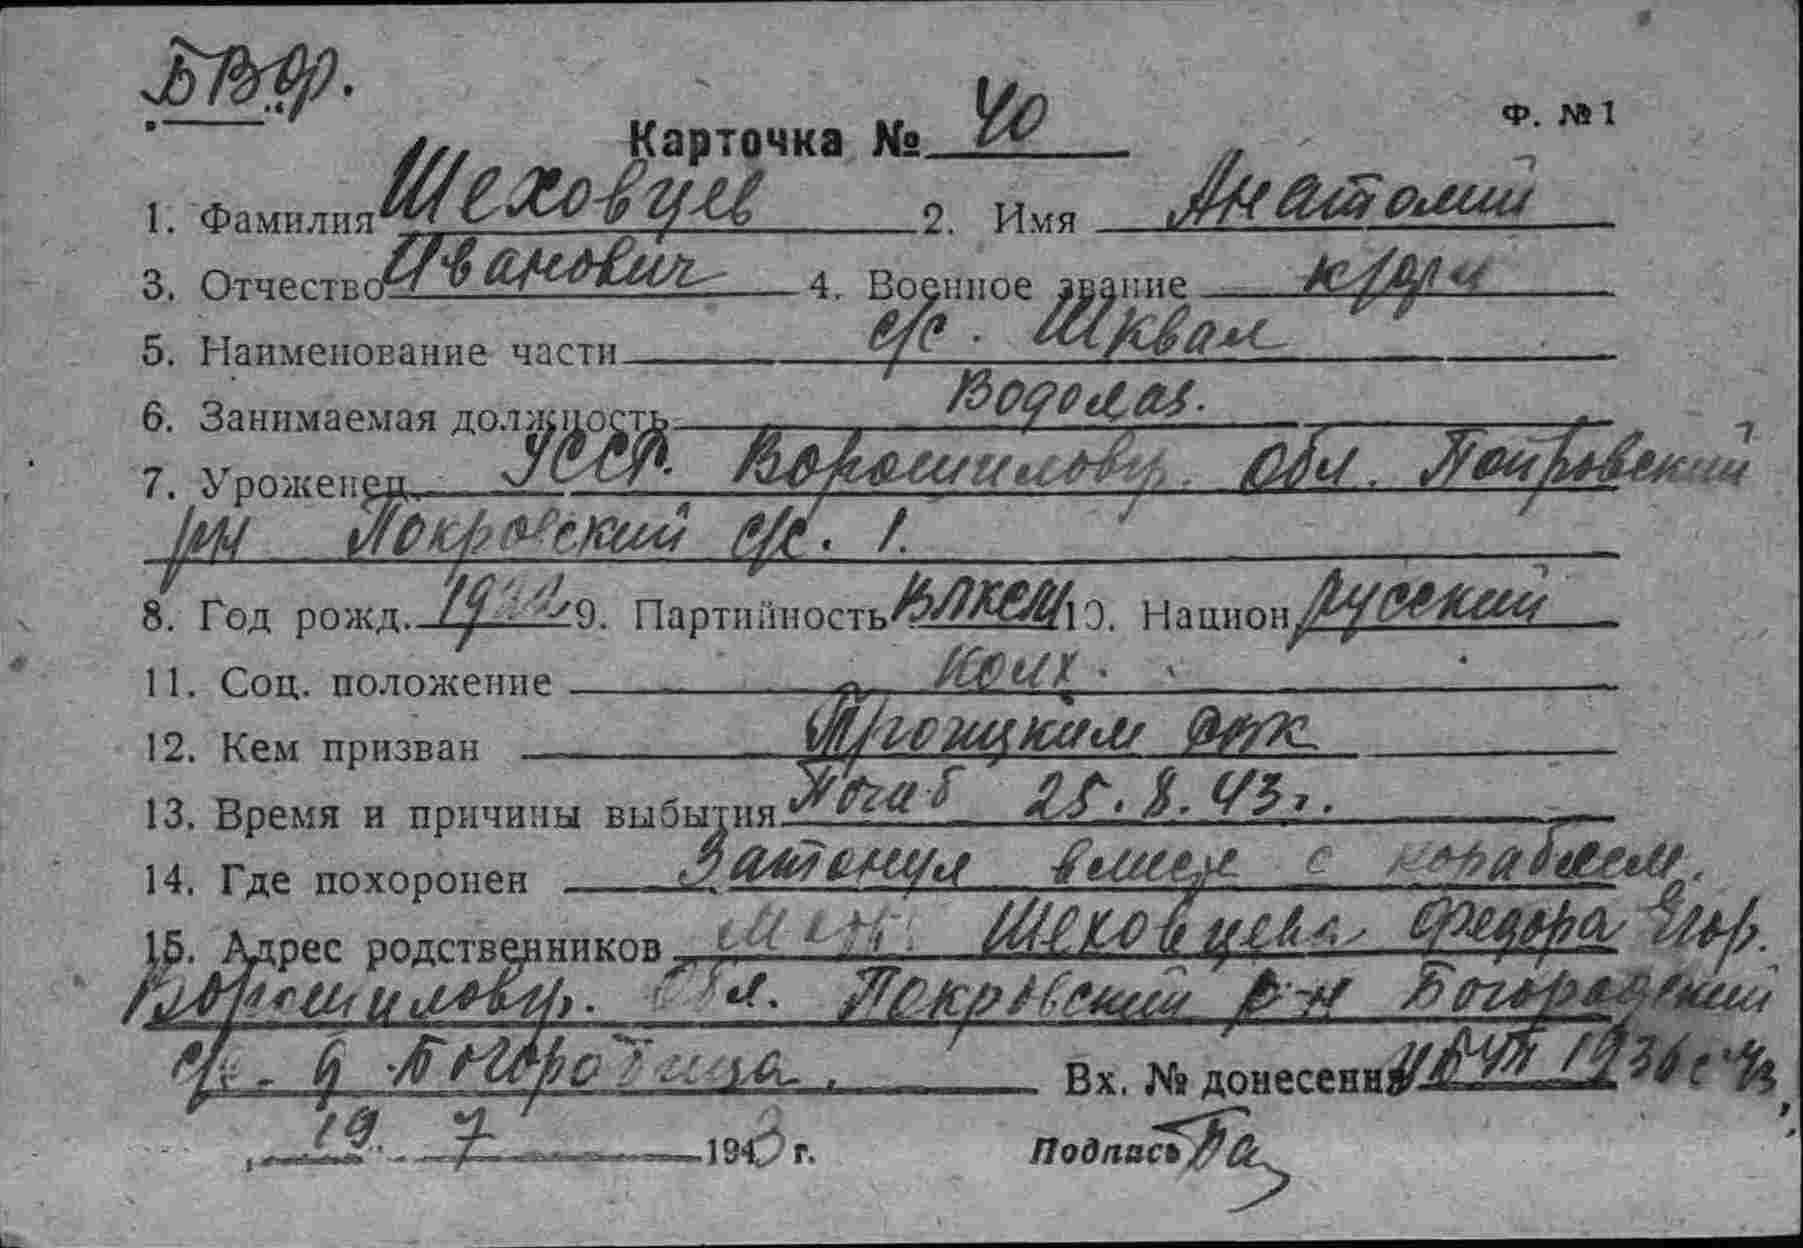 БВФ.
Карточка № 40
Ф. № 1
1. Фамилия Шеховцев 2. Имя Анатолий
3. Отчество Иванович 4. Военное звание кр/фл
5. Наименование части с/с. Шквал
6. Занимаемая должность Водолаз.
7. Уроженец УССР. Ворошиловгр. обл. Покровский
р/н Покровский с/с. 1.
8. Год рожд. 9. Партийность ВЛКСМ 10. Национ. русский
11. Соц. положение колх.
12. Кем призван Троицким
13. Время и причины выбытия Погиб 25.8.43г.
14. Где похоронен Затонул вместе с кораблем.
15. Адрес родственников Шеховцева Федора Егор.
Ворошиловгр. обл. Покровский р-н
с/с. д. Вх. № донесения
19. 7 1943 г. Подпись